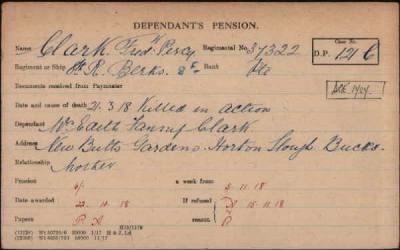 DEPENDANT'S PENSION.
Name Clark. Fredk Percy Regimental No. 37322 Case No. D.P. 121 C
Regiment or Ship R. Berks. Rank Pte
Documents received from Paymaster
Date and cause of death 21.3.18 Killed in action
Dependant Mrs Edith Fanny Clark
Address New Butts Gardens Horton Slough Bucks.
Relationship Mother
Pension 5/- a week from 5.11.18
Date awarded 23.10.18 If refused 15.11.18
Papers P. A reason